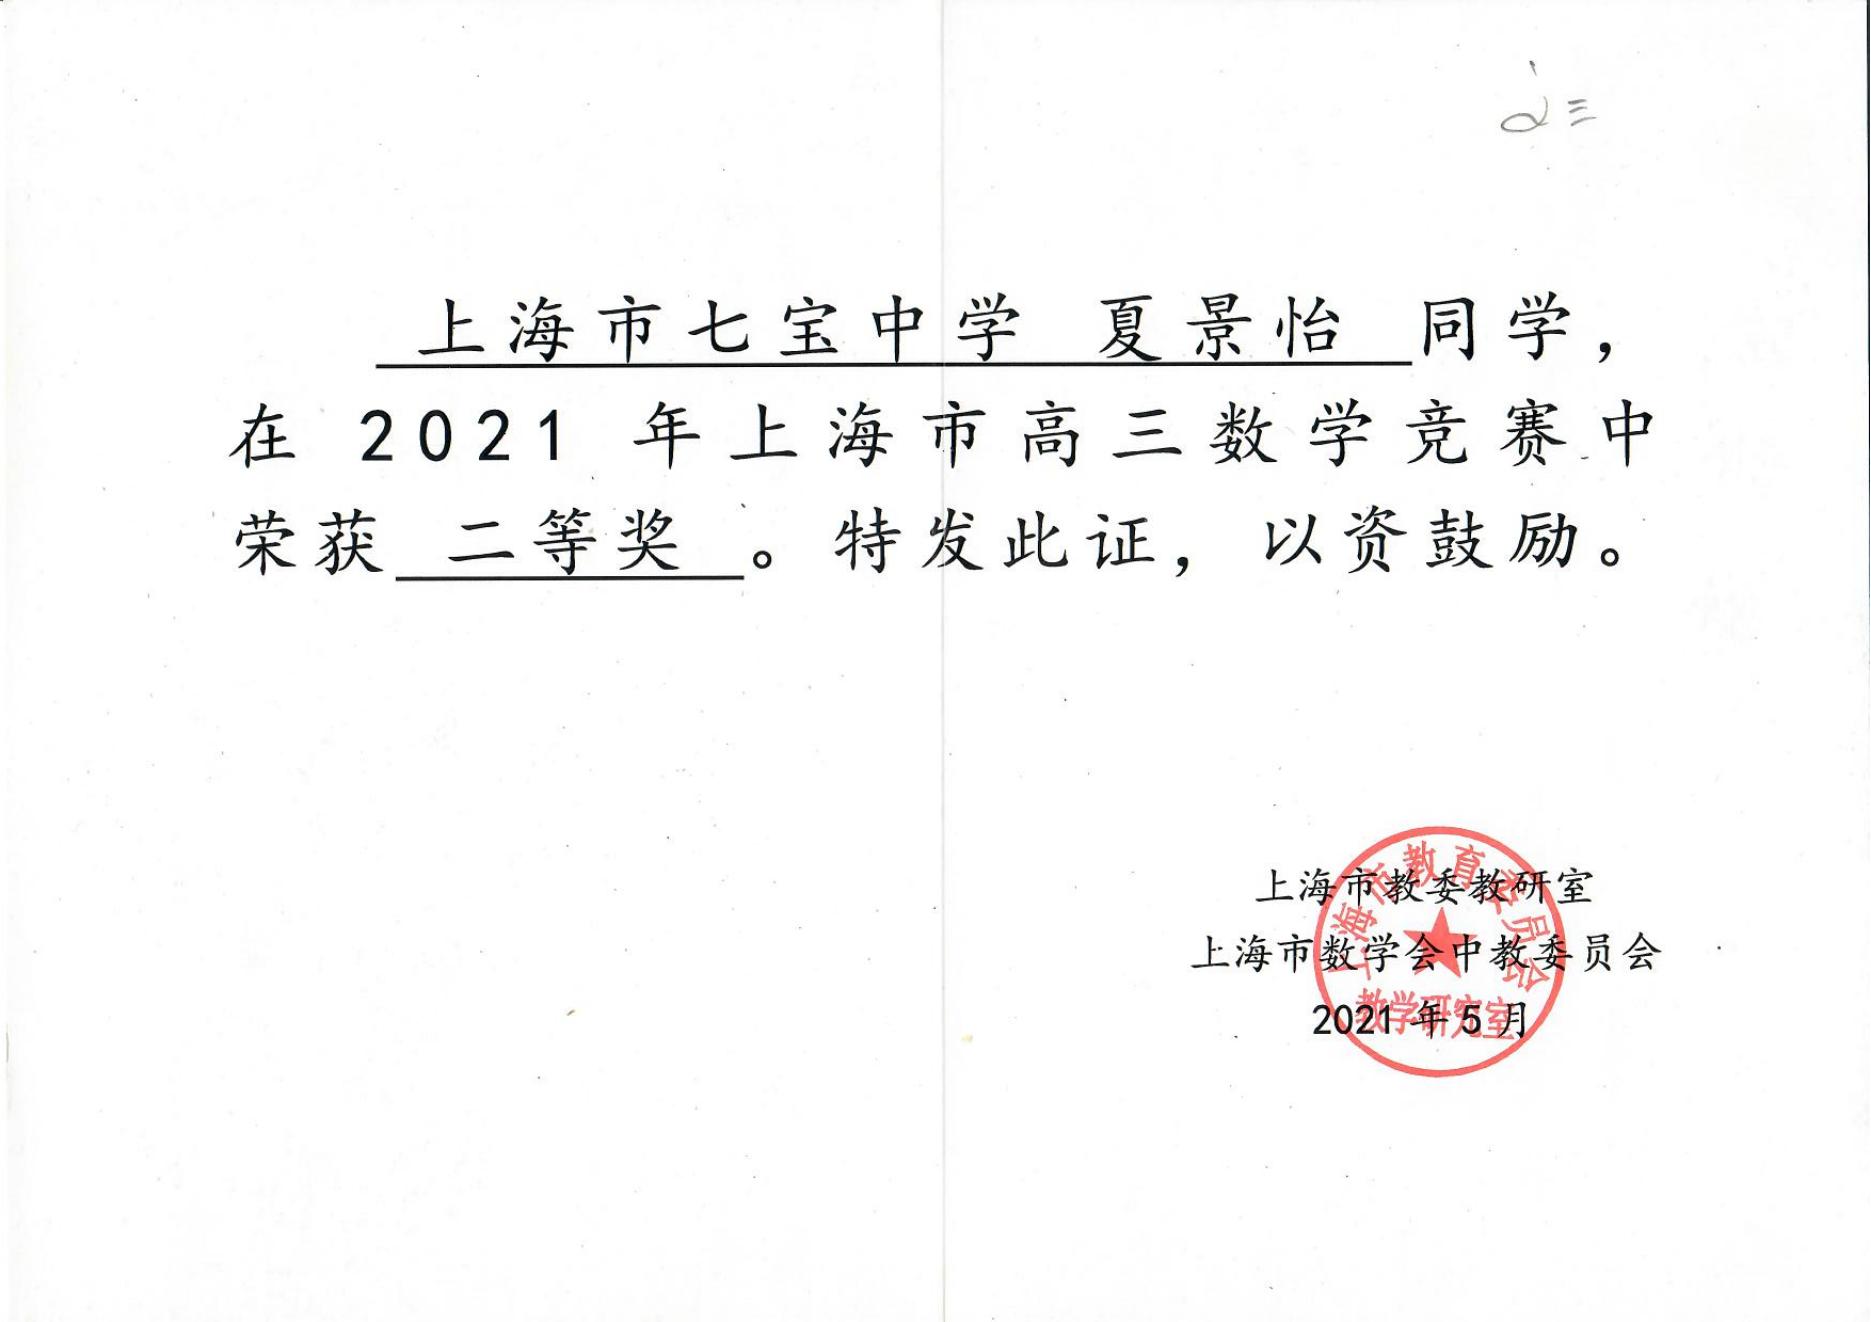 上海市七宝中学 夏景怡 同学，
在 2021 年上海市高三数学竞赛中
荣获 二等奖 。特发此证，以资鼓励。
上海市教委教研室
上海市数学会中教委员会
2021 年 5 月
上海市教育委员会
教学研究室